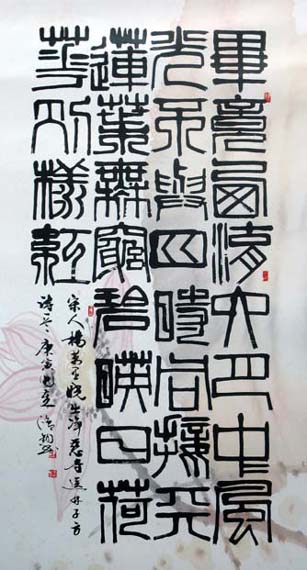 畢竟西湖六月中風
光不與四時同接天
蓮葉無窮碧暎日荷
華別樣紅
宋人楊萬里曉出淨慈寺送林子方
詩 庚寅